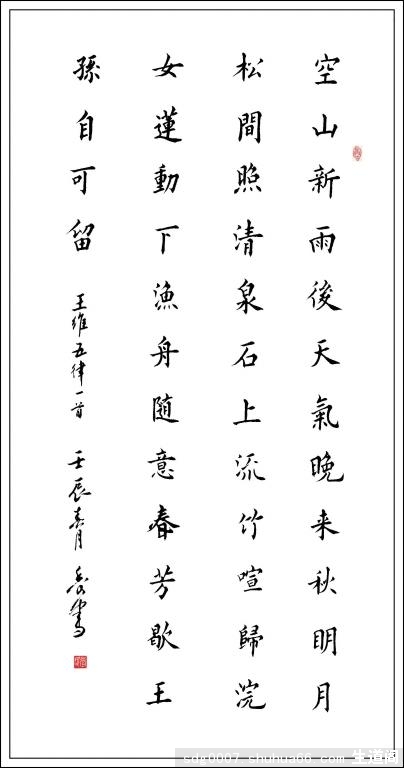 空山新雨後天氣晚来秋明月
松間照清泉石上流竹喧歸浣
女蓮動下漁舟隨意春芳歇王
孫自可留
王維五律一首 壬辰春月
sdg0007.shuhua66.com 生道阁